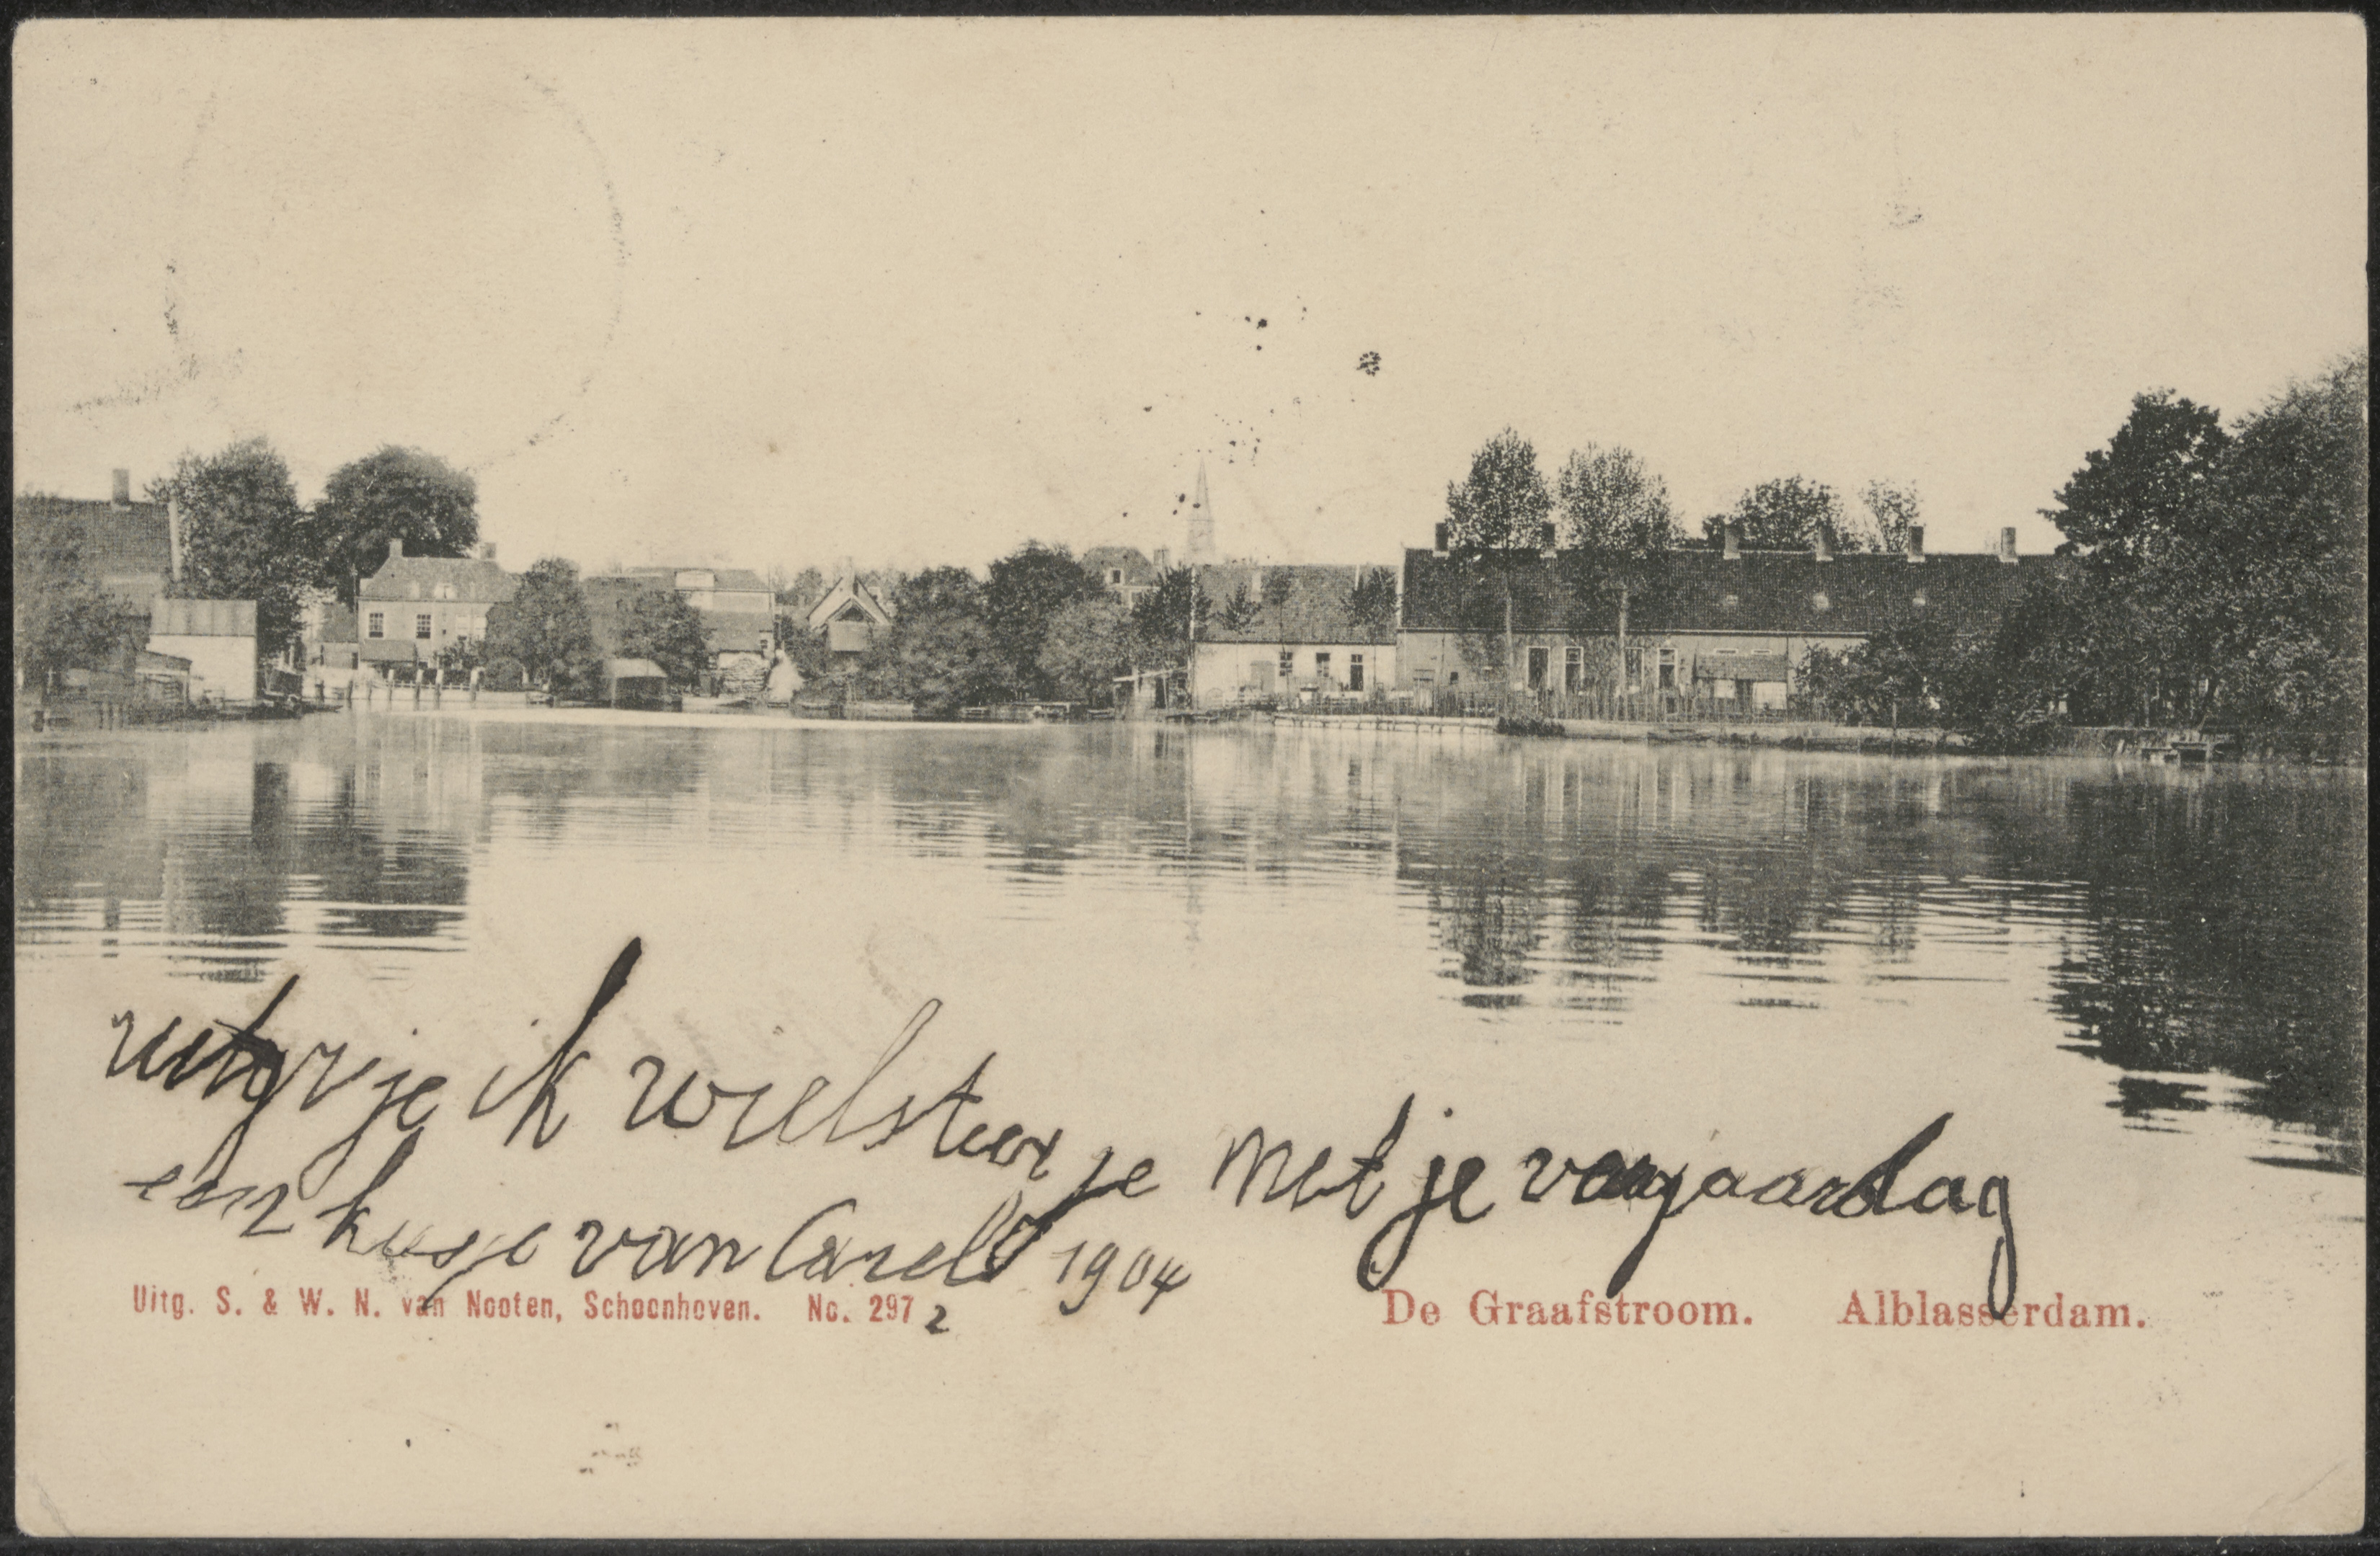 je ik wielsteer je met je varjaardag
een kusje van Carel 1904
Uitg. S. & W. N. van Nooten, Schoonhoven. No. 297 2
De Graafstroom. Alblasserdam.